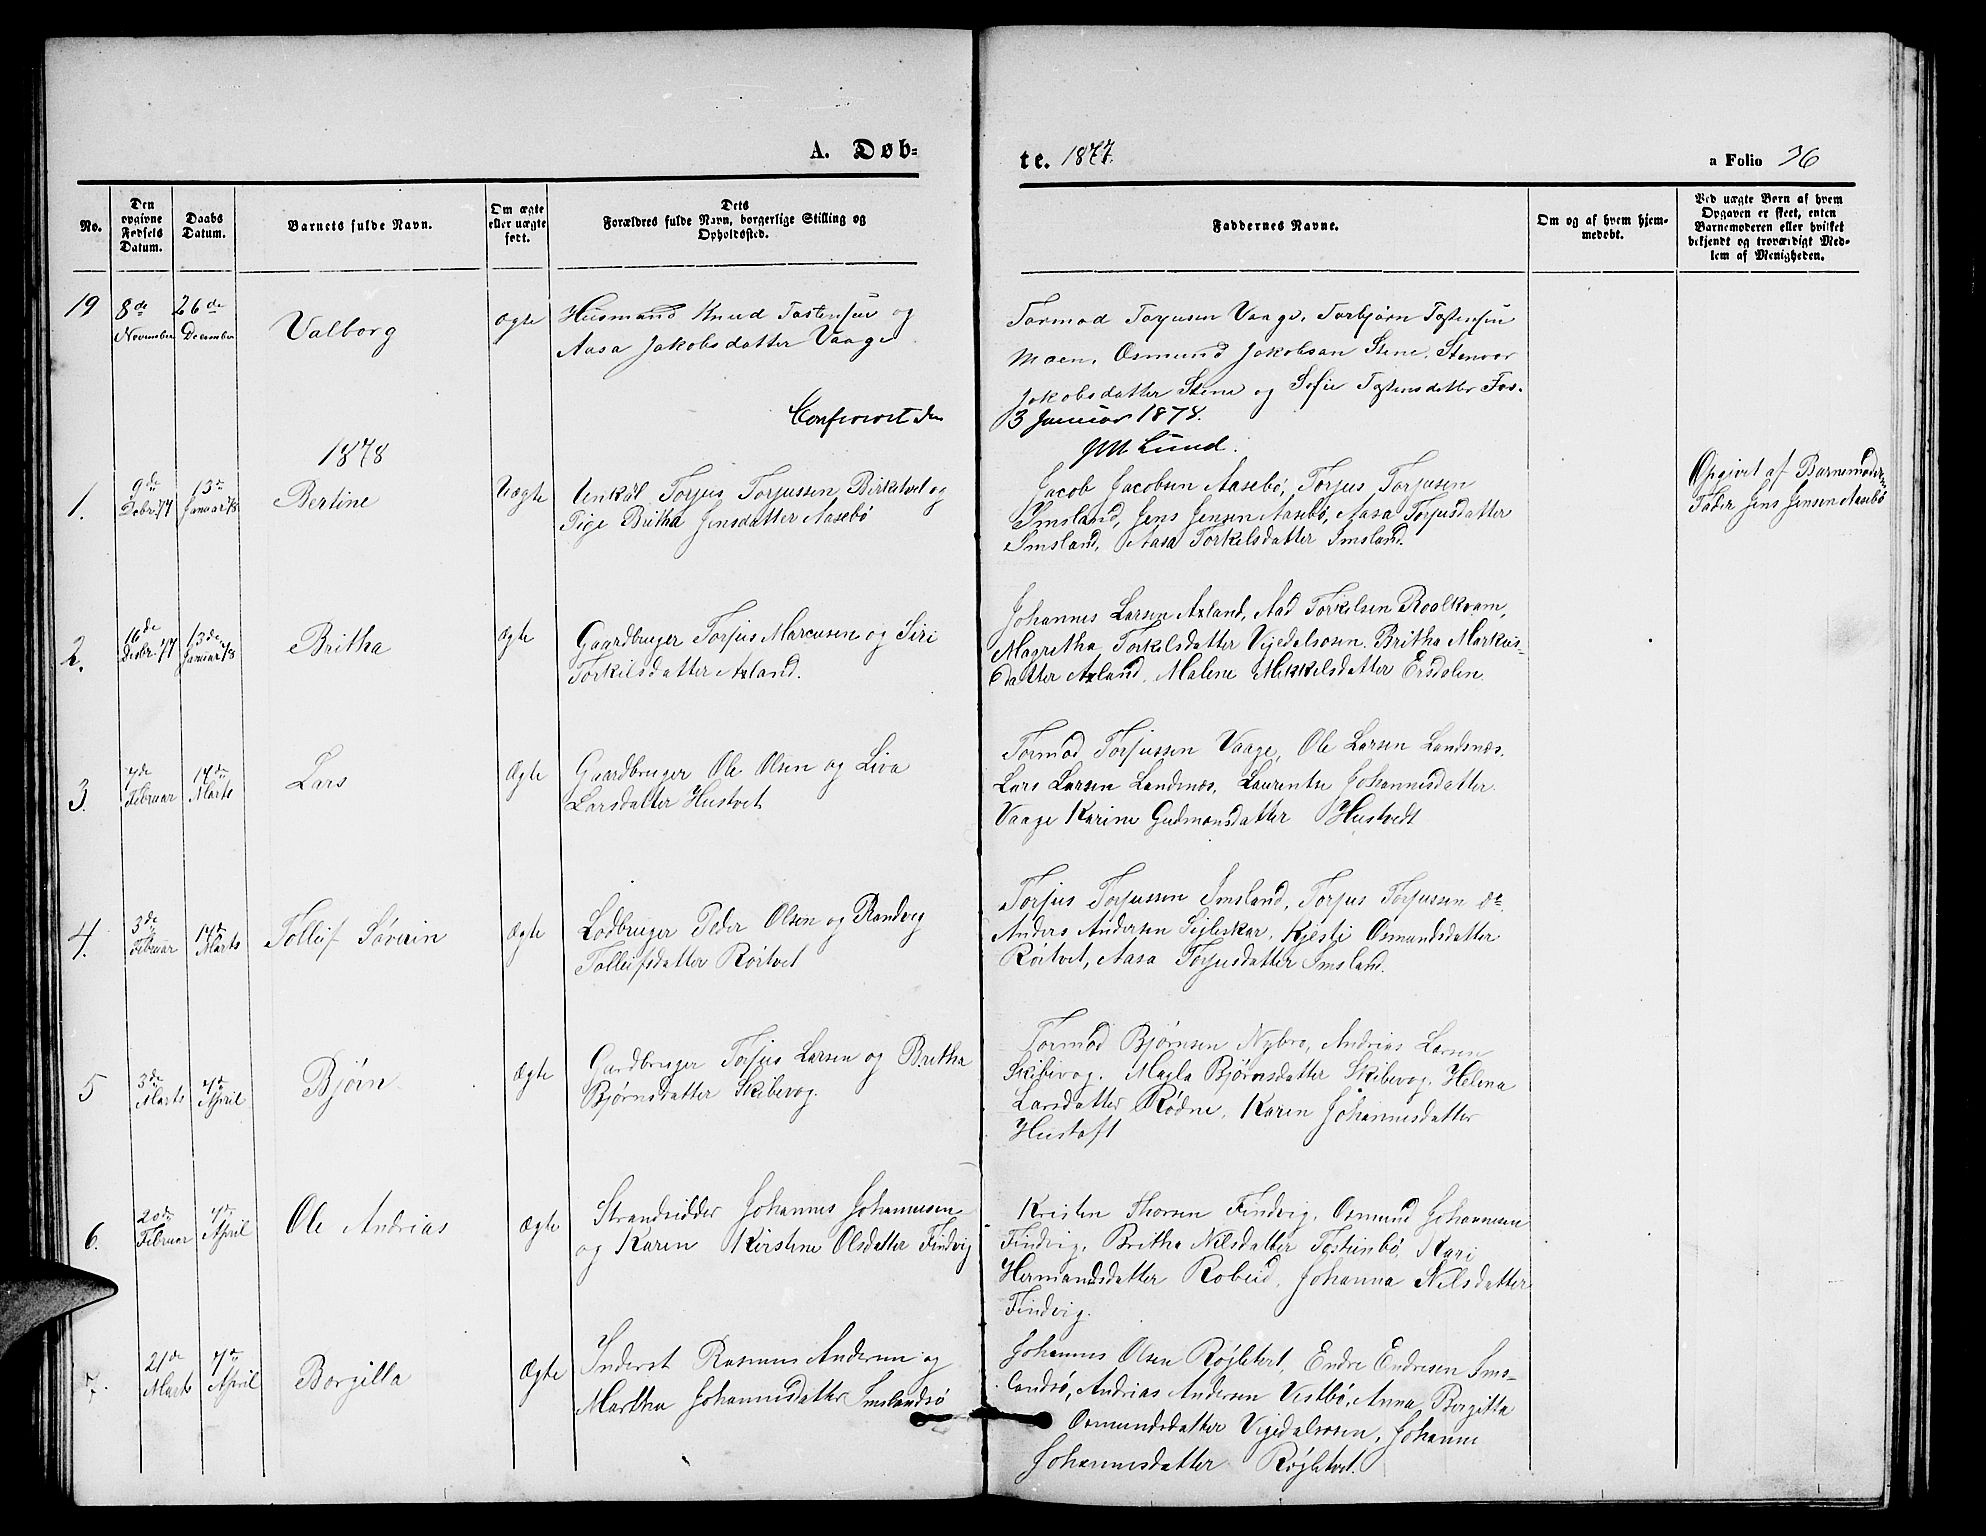 A. Døb=
te. 1877.
a Folio 36
No.
Den opgivne Fødsels Datum.
Daabs Datum.
Barnets fulde Navn.
Om ægte eller uægte født.
Dets Forældres fulde Navn, borgerlige Stilling og Opholdssted.
Faddernes Navne.
Om og af hvem hjemmedøbt.
Ved uægte Børn af hvem Opgaven er skeet, enten Barnemoderen eller hvilket bekjendt og troværdigt Medlem af Menigheden.
19
8de November
26de December
Valborg
Ægte
Husmand Knud Tostensen og
Aasa Jakobsdatter Vaage
Tormod Torjusen Vaage, Torbjørn Tostensen
Moen, Osmund Jakobsen Stene, Stenvor
Jakobsdatter Stene og Sofie Tostensdatter Fos.
Confereret den
3 Januar 1878.
Lund.
1878
1.
9de Decbr 77
13de Januar 78
Bertine
Uægte
Unkål Torjus Torjussen Birketvet og
Pige Britha Jensdatter Aasebø
Jacob Jacobsen Aasebø, Torjus Torjusen
Imsland, Jens Jensen Aasebø, Aasa Torjusdatter
Imsland, Aasa Torkelsdatter Imsland.
Opgivet af Barnemoderens
Fader Jens Jensen Aasebø
2.
16de Decbr 77
13de Januar 78
Britha
Ægte
Gaardbruger Torjus Marcusen og Siri
Torkilsdatter Axland.
Johannes Larsen Axland, Aad Torkelsen Roalkvam,
Magretha Torkelsdatter Vigedalsosen, Britha Markus-
datter Axland, Malene Mikkelsdatter Ersdalen.
3.
7de Februar
17de Marts
Lars
Ægte
Gaardbruger Ole Olsen og Liva
Larsdatter Hustvet
Tormod Torjussen Vaage, Ole Larsen Landsnæs.
Lars Larsen Landsnæs, Laurentse Johannesdatter
Vaage Karine Gudmonsdatter Hustvedt
4.
3de Februar
17de Marts
Tollef Søverin
Ægte
Lodbruger Peder Olsen og Randvig
Tollefsdatter Röitvet
Torjus Torjussen Imsland, Torjus Torjussen do.
Anders Andersen Sigleskar, Kjesti Osmundsdatter
Röitvet, Aasa Torjusdatter Imsland.
5
3de Marts
7de April
Bjørn
Ægte
Gardbruger Torjus Larsen og Britha
Bjørnsdatter Skibevog.
Tormod Bjørnsen Nybro, Andrias Larsen
Skibevog, Magla Bjørnsdatter Skibevog, Helena
Larsdatter Rødne, Karen Johannesdatter
Hustoft
6.
20de Februar
7de April
Ole Andrias
Ægte
Strandsidder Johannes Johannesen
og Karen Kirstine Olsdatter Findvig
Kristen Thorsen Findvig, Osmund Johannesen
Findvig, Britha Nilsdatter Tostenbø, Kari
Hermandsdatter Robeid, Johanna Nilsdatter
Findvig.
7.
21de Marts
7de April
Borgilla
Ægte
Inderst Rasmus Andersen og
Martha Johannesdatter Imslandsø
Johannes Olsen Røgletvet, Endre Endresen Ims-
landsø, Andrias Andersen Vestbø, Anna Bergitta
Osmundsdatter Vigedalsosen, Johanne
Johannesdatter Røgletvet.